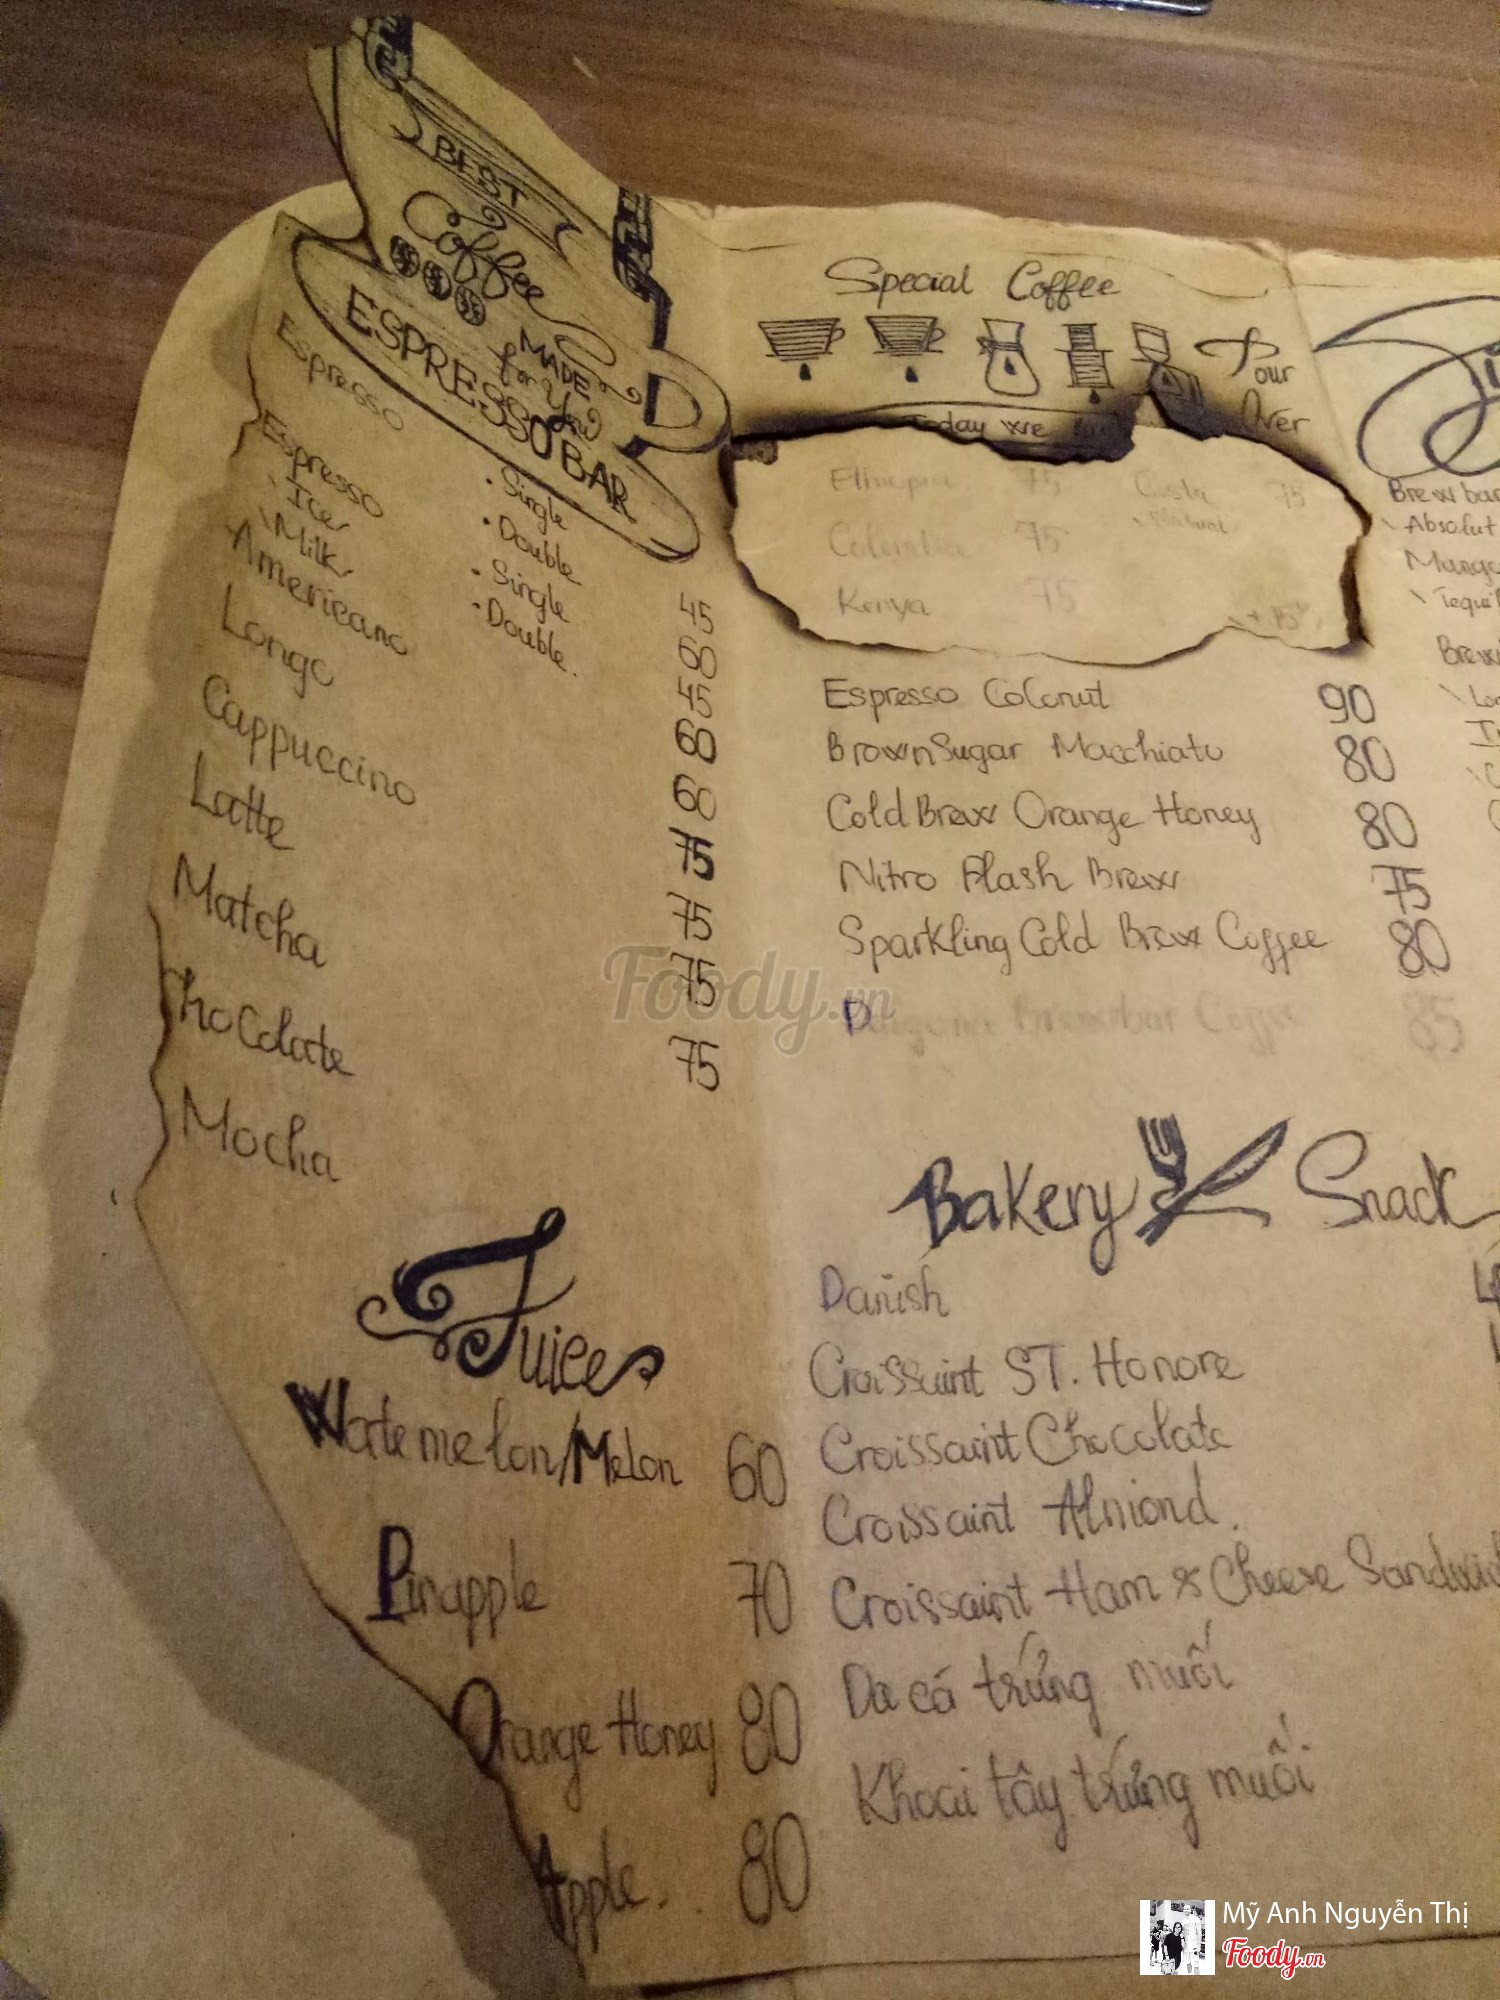 BEST
Coffee
MADE
for You
ESPRESSO BAR
Espresso
Espresso
Ice
Milk
Americano
Longo
Cappuccino
Latte
Matcha
Chocolate
Mocha
• Single
• Double
• Single
• Double.
45
60
45
60
60
75
75
75
75
Juice
Watemelon/Melon 60
Pinapple 70
Orange Honey 80
Apple.. 80
Special Coffee
Pour
Over
Today we
Ethiopia 75
Costa 75
Natural
Colombia 75
Kenya 75
Espresso Coconut 90
Brown Sugar Macchiato 80
Cold Brew Orange Honey 80
Nitro Flash Brew 75
Sparkling Cold Brew Coffee 80
Brewbar Coffee 85
Bakery Snack
Danish
Croissaint ST. Honore
Croissaint Chocolate
Croissaint Almond.
Croissaint Ham & Cheese
Da cá trứng muối
Khoai tây trứng muối
Absolut
Foody.vn
Mỹ Anh Nguyễn Thị
Foody.vn